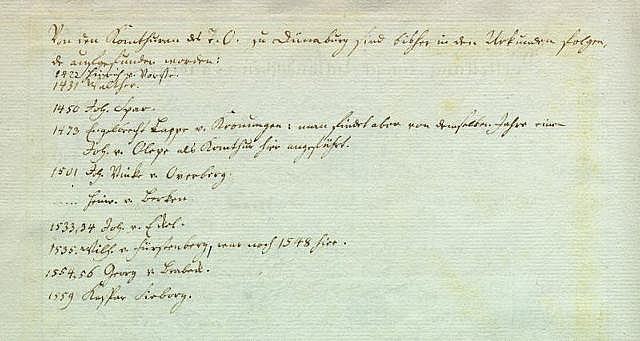 Von den Komthuren des T. O. zu Dünaburg sind bisher in den Urkunden folgen-
de aufgefunden worden:
1422 Hinrich v. Vorste.
1431 Walther.
1450 Joh. Spar.
1473 Engelbrecht Lappe v. Koenungen: man findet aber von demselben Jahre eine
Joh. v. Olepe als Komthur hier angeführt.
1501 Joh. Vinke v. Overberg.
..... Heinr. v. Borken
1533,34 Joh. v.
1535. Wilh. v. Fürstenberg, war noch 1548 hier.
1554.56 Georg v. Brabeck.
1559 Kaspar Sieborg.